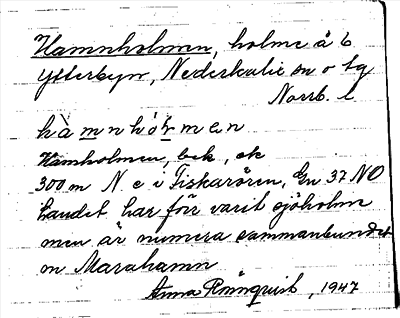 Hamnholmen, holme å b
Ytterbyn, Nederkalix sn o tg
Norrb. l
hàmnhólmen
Hamholmen, bek, ek
300 m N e i Fiskarören, Gn 37 NO
landet, har förr varit sjöholme
men är numera sammanbundet
m Marahamn
Anna Rönnquist, 1947